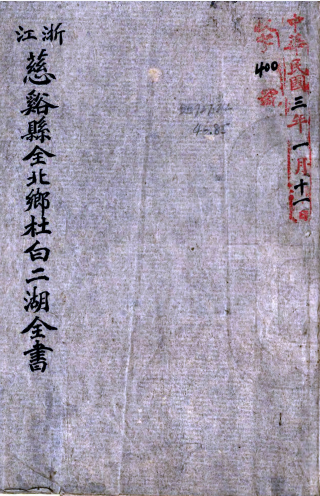 中華民國三年一月十一日
400
浙江
慈谿縣全北鄉杜白二湖全書